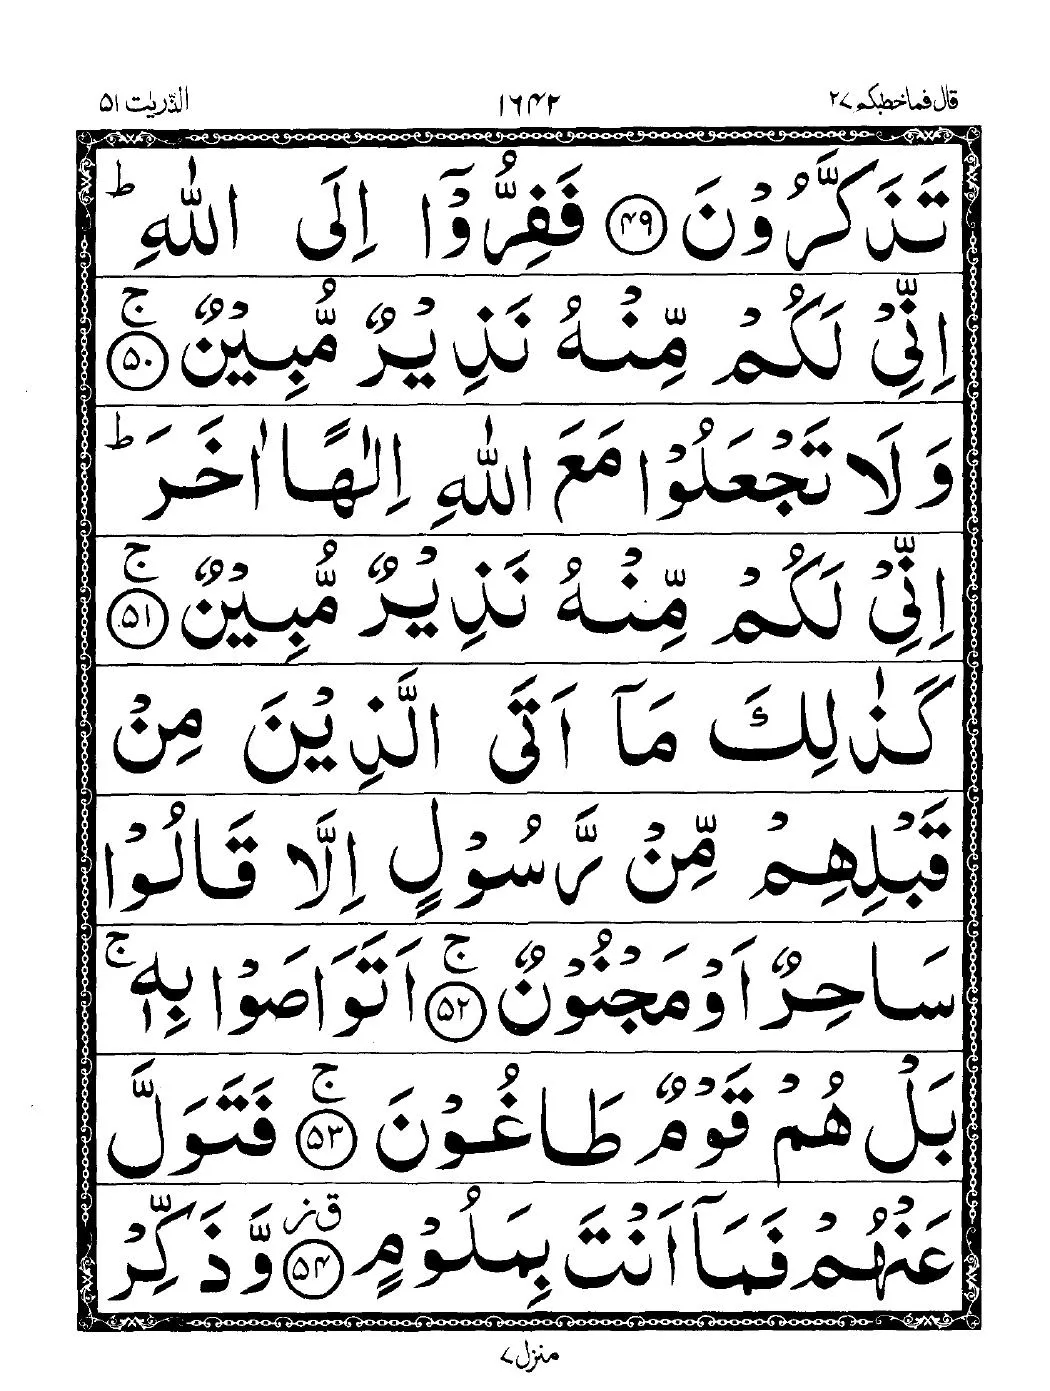 قال فماخطبکم ۲۷ ۱۶۴۲ الذّٰریٰت ۵۱
تَذَكَّرُوْنَ ۴۹ فَفِرُّوْۤا اِلَى اللّٰهِ ؕ
اِنِّیْ لَكُمْ مِّنْهُ نَذِیْرٌ مُّبِیْنٌ ۚ ۵۰
وَلَا تَجْعَلُوْا مَعَ اللّٰهِ اِلٰهًا اٰخَرَ ؕ
اِنِّیْ لَكُمْ مِّنْهُ نَذِیْرٌ مُّبِیْنٌ ۚ ۵۱
كَذٰلِكَ مَاۤ اَتَى الَّذِیْنَ مِنْ
قَبْلِهِمْ مِّنْ رَّسُوْلٍ اِلَّا قَالُوْا
سَاحِرٌ اَوْ مَجْنُوْنٌ ۚ ۵۲ اَتَوَاصَوْا بِهٖ ۚ
بَلْ هُمْ قَوْمٌ طَاغُوْنَ ۚ ۵۳ فَتَوَلَّ
عَنْهُمْ فَمَاۤ اَنْتَ بِمَلُوْمٍ ق ز ۵۴ وَّذَكِّرْ
منزل ۷